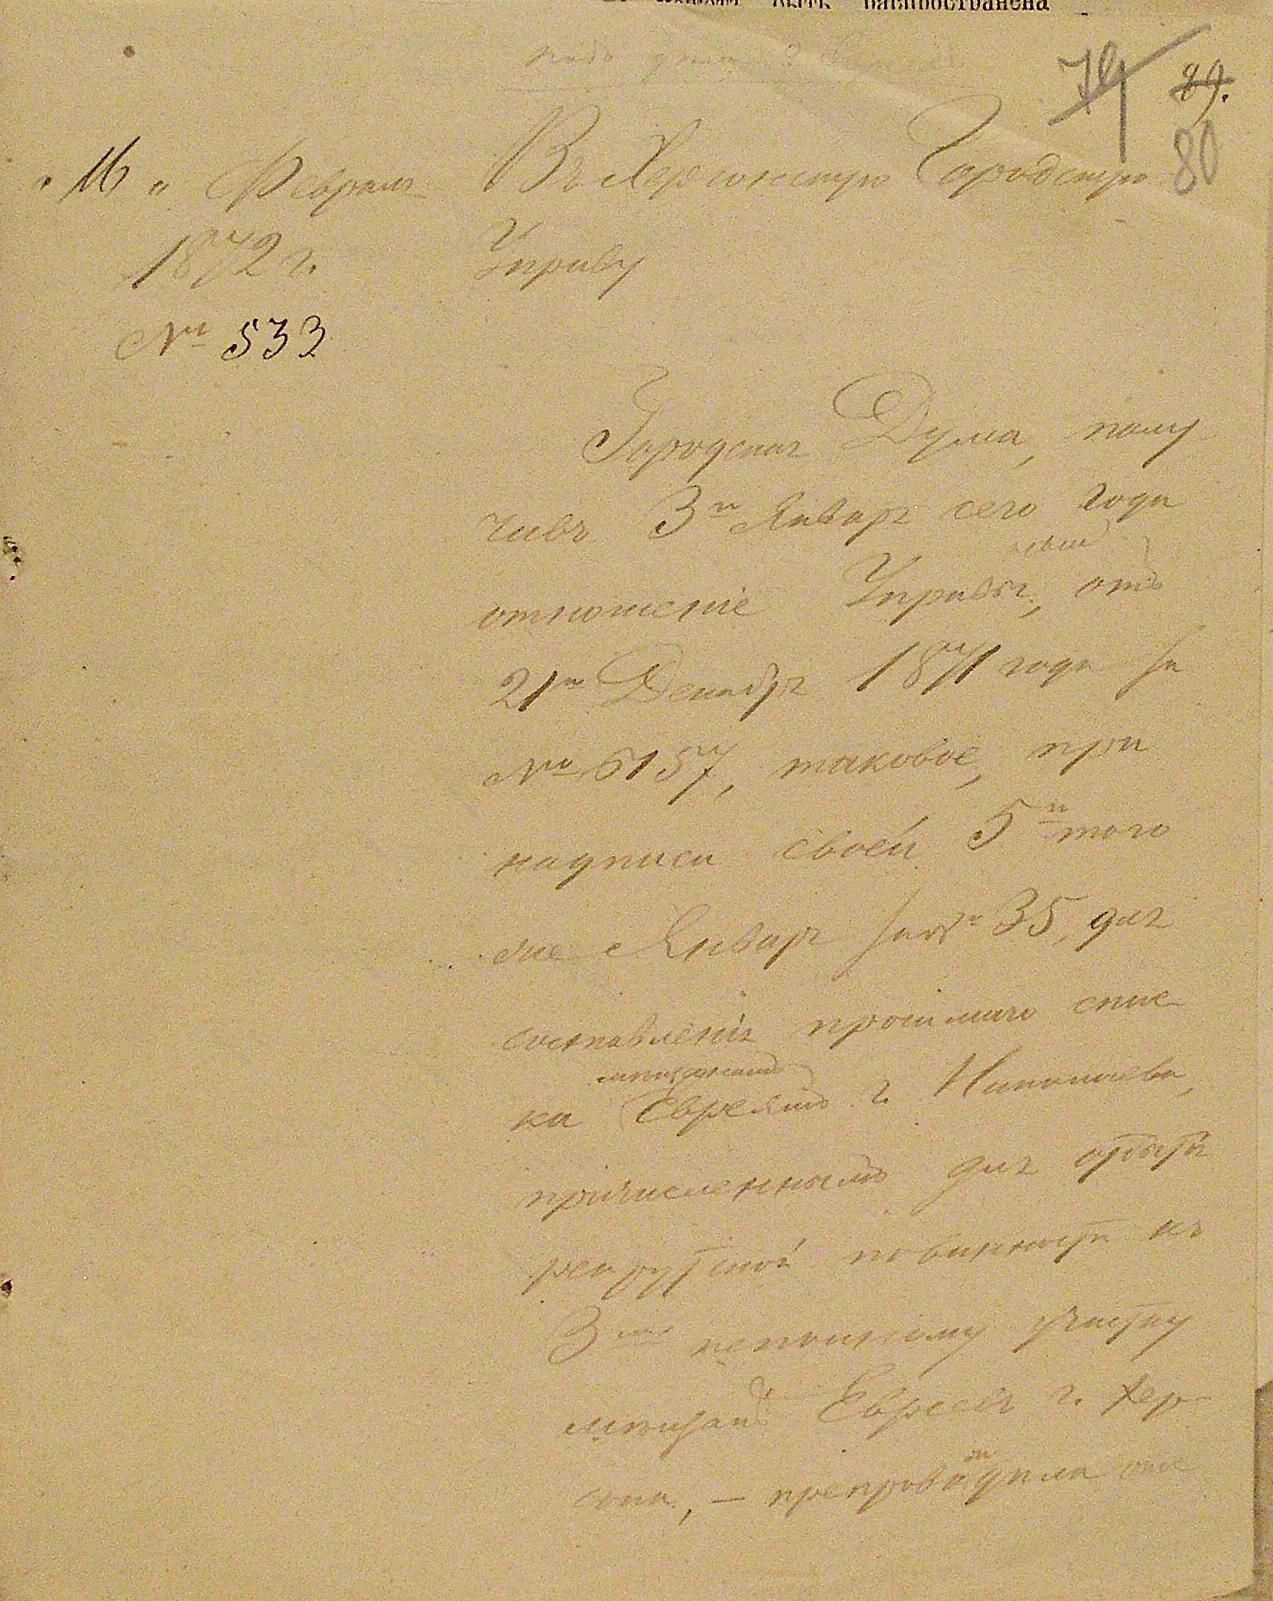 распространена
79 89.
80
„ 16 „ Февраля
1872 г.
№ 533
Въ Херсонскую Городскую
Управу
Городская Дума, полу
чивъ 3го Января сего года
отношеніе Управы, отъ
21го Декабря 1871 года за
№ 6157, таковое, при
надписи своей 5го того
же Января за № 35, для
составленія просимаго спис
ка мѣщанамъ Евреямъ г. Николаева,
причисленнымъ для отбытія
рекрутской повинности къ
3му неполному участку
мѣщанъ Евреевъ г. Хер
сона, — препроводила